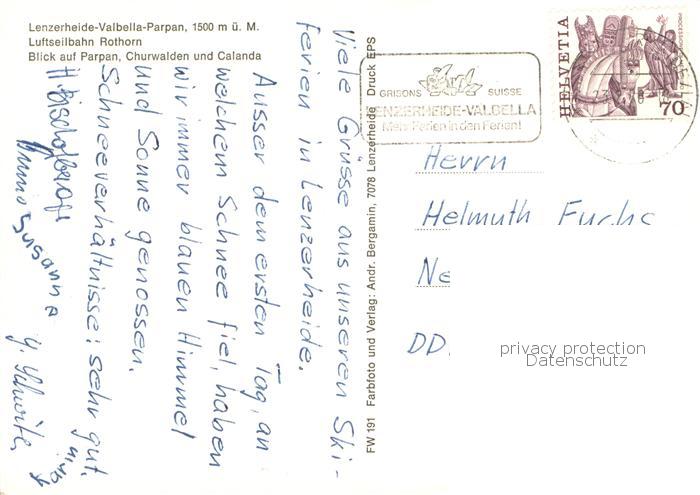 Lenzerheide-Valbella-Parpan, 1500 m ü. M.
Luftseilbahn Rothorn
Blick auf Parpan, Churwalden und Calanda
Viele Grüsse aus unseren Ski-
ferien in Lenzerheide.
Ausser dem ersten Tag, an
welchem Schnee fiel, haben
wir immer blauen Himmel
und Sonne genossen.
Schneeverhältnisse: sehr gut
Susanna
FW 191 Farbfoto und Verlag: Andr. Bergamin, 7078 Lenzerheide Druck EPS
GRISONS SUISSE
LENZERHEIDE-VALBELLA
Mehr Ferien in den Ferien!
HELVETIA
70
Herrn
Helmuth Fuchs
Ne
DD.
privacy protection
Datenschutz